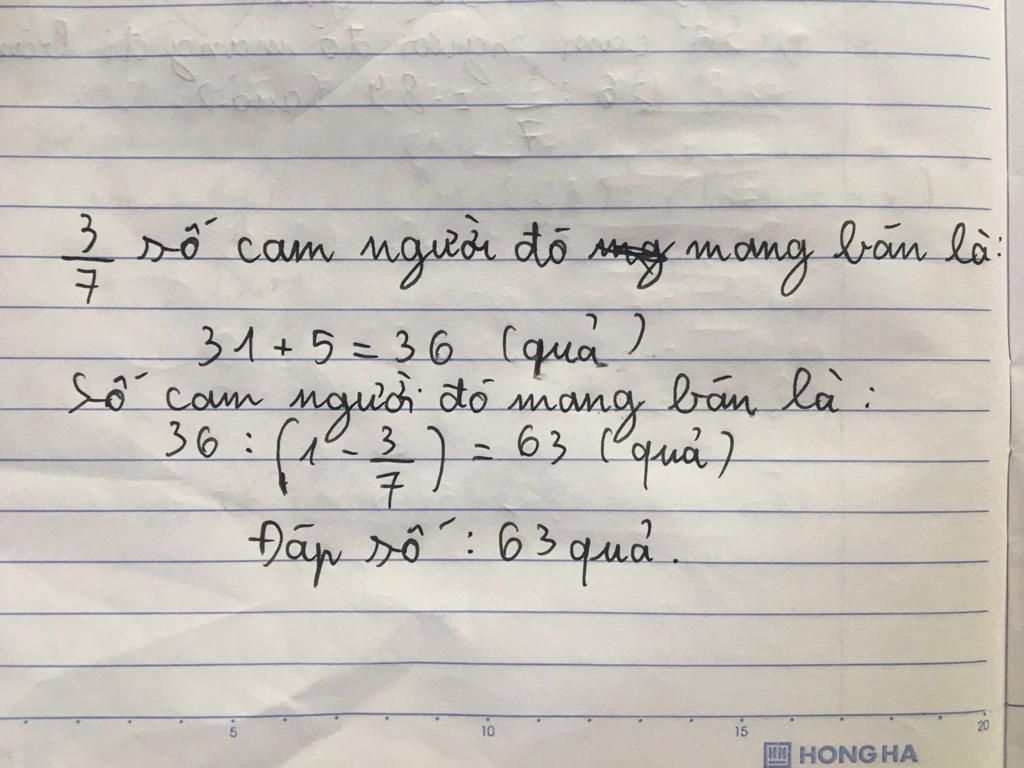 3/7 số cam người đó mang bán là:
31 + 5 = 36 (quả)
Số cam người đó mang bán là:
36 : (1 - 3/7) = 63 (quả)
Đáp số: 63 quả.
5 10 15 20
HONG HA